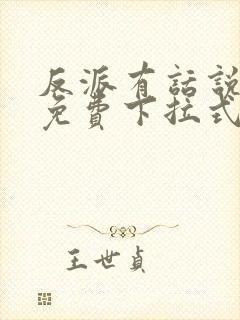 反派有話說
免費下拉式
王世貞